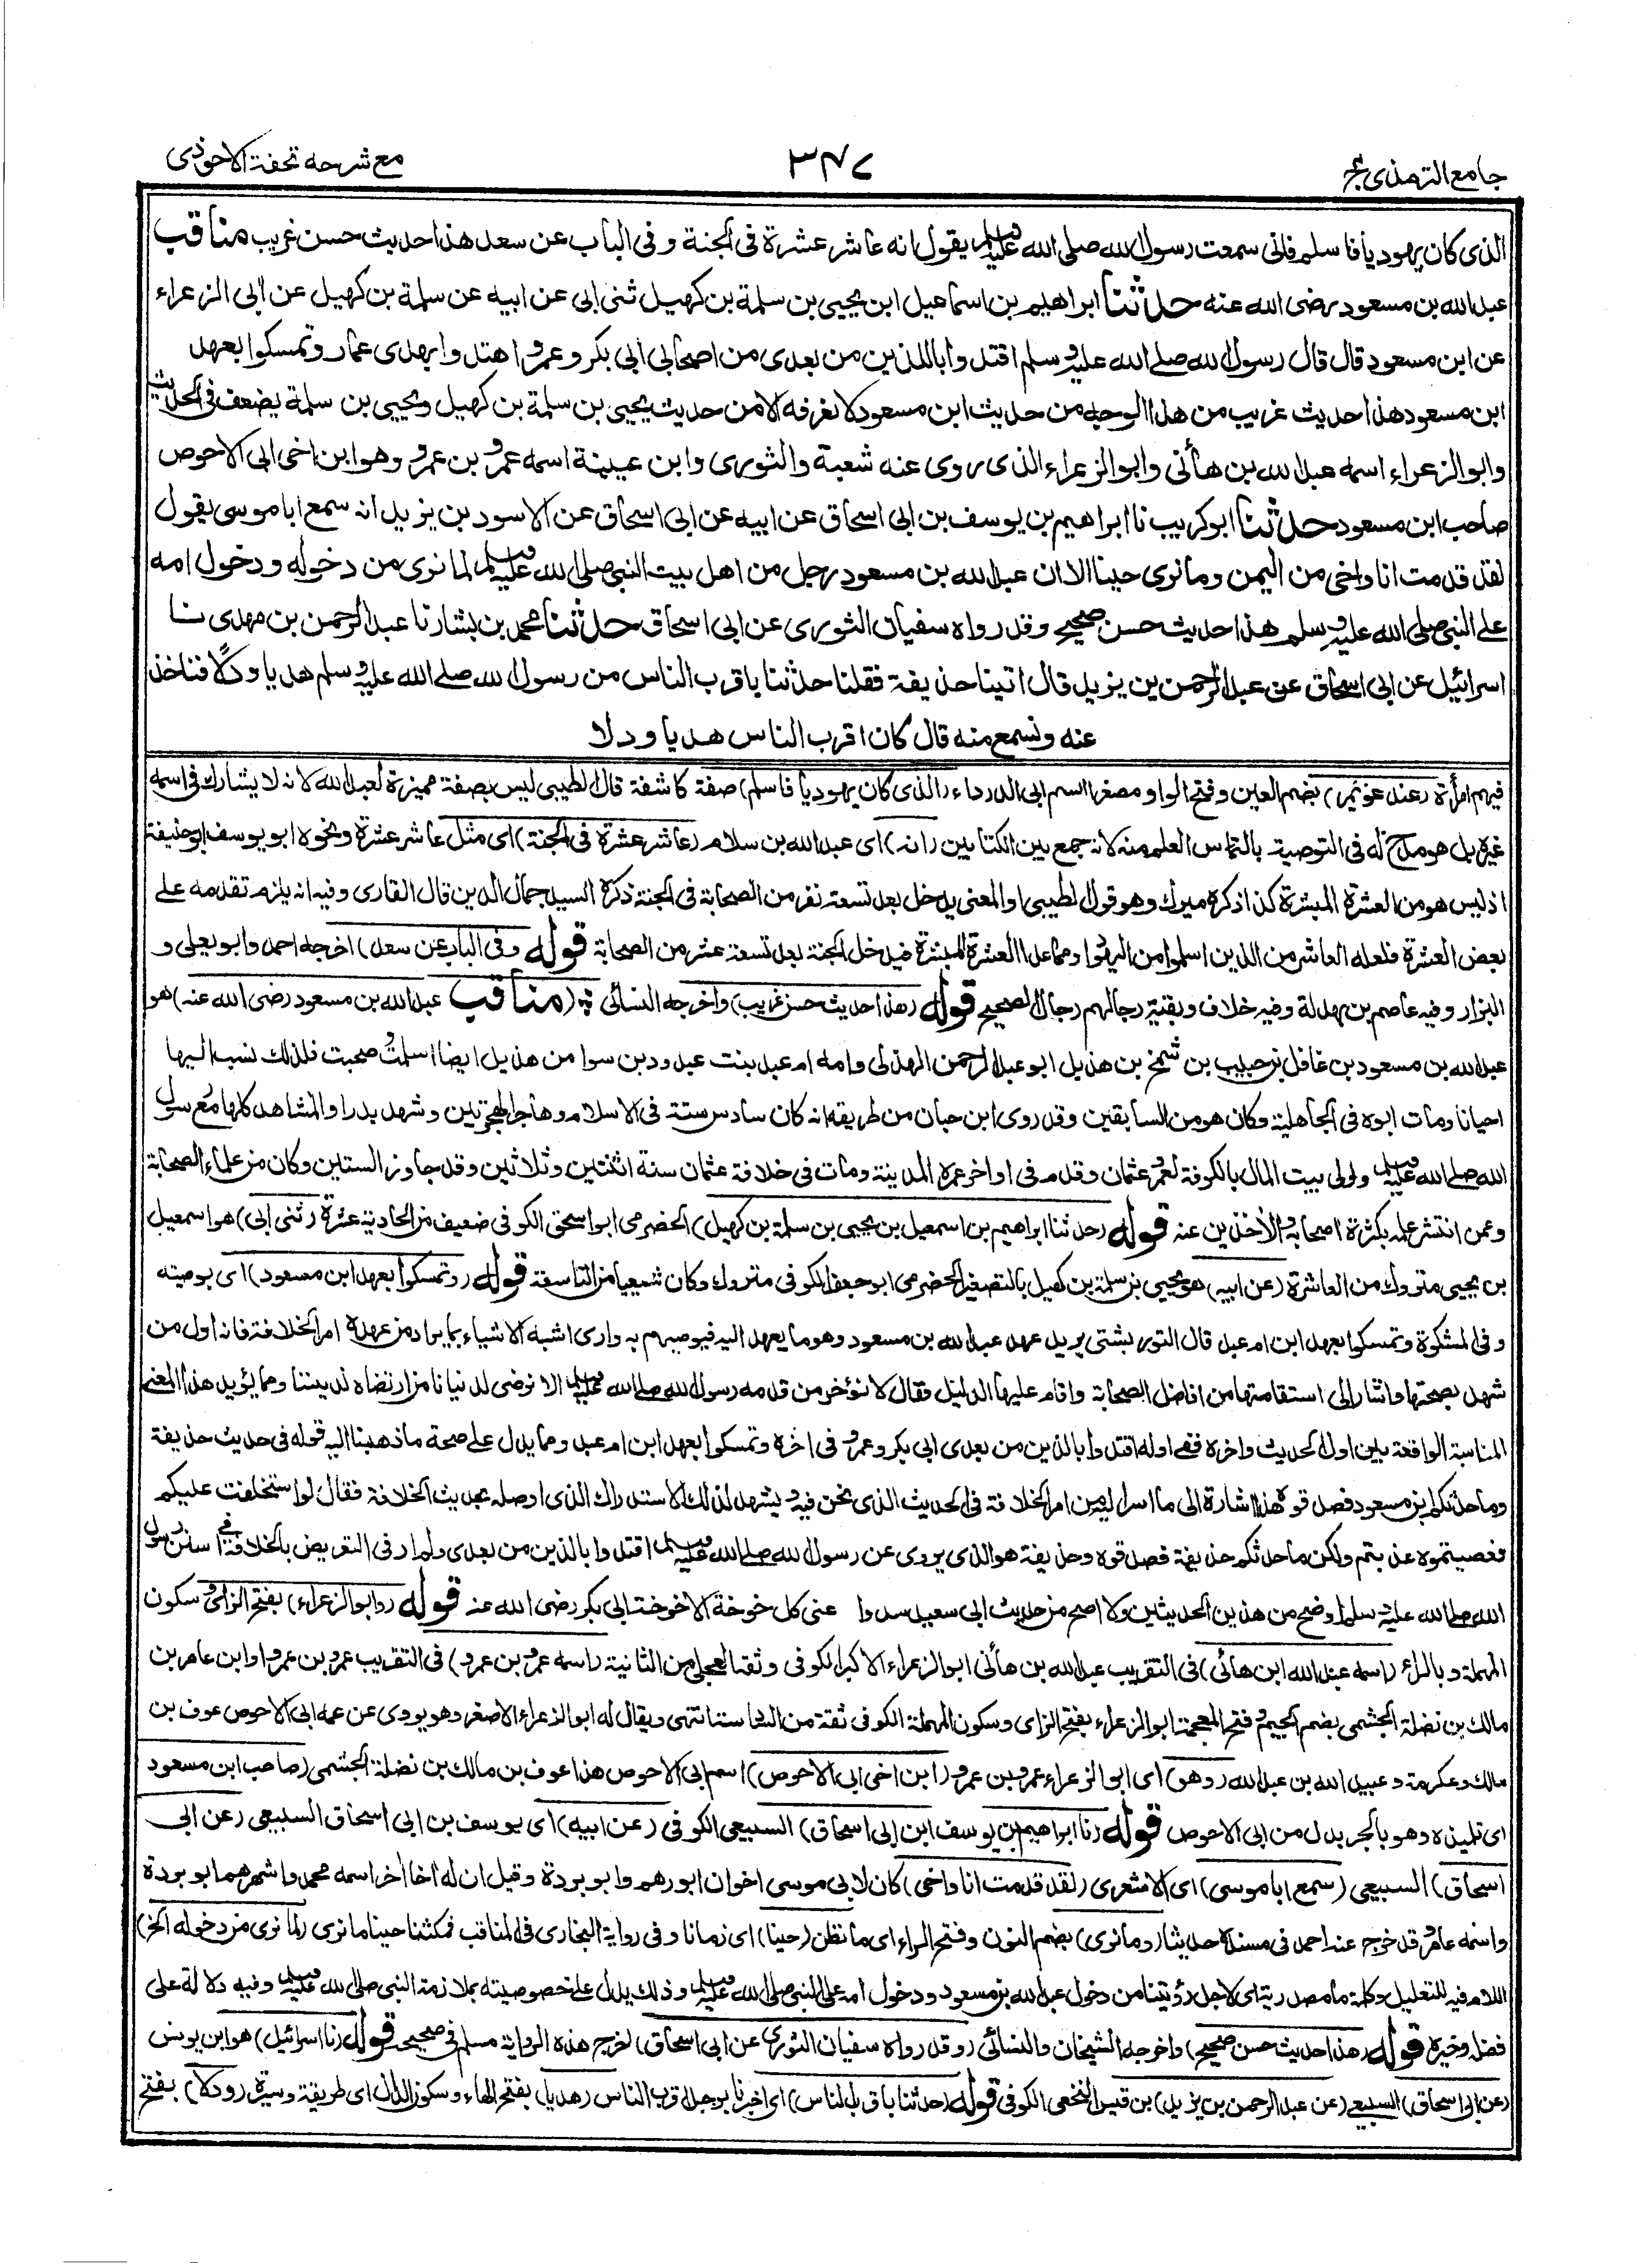 جامع الترمذی ج
٣٤٧
مع شرحه تحفة الاحوذی
الذی کان یهودیا فاسلم فانی سمعت رسول الله صلی الله علیه وسلم یقول انه عاشر عشرة فی الجنة وفی الباب عن سعد هذا حدیث حسن غریب مناقب
عبد الله بن مسعود رضی الله عنه حدثنا ابراهیم بن اسماعیل ابن یحیی بن سلمة بن کهیل ثنی ابی عن ابیه عن سلمة بن کهیل عن ابی الزعراء
عن ابن مسعود قال قال رسول الله صلے الله علیه وسلم اقتدوا بالذین من بعدی من اصحابی ابی بکر وعمر واهتدوا بهدی عمار وتمسکوا بعهد
ابن مسعود هذا حدیث غریب من هذا الوجه من حدیث ابن مسعود لا نعرفه الا من حدیث یحیی بن سلمة بن کهیل ویحیی بن سلمة یضعف فی الحدیث
وابو الزعراء اسمه عبد الله بن هانی وابو الزعراء الذی روی عنه شعبة والثوری وابن عیینة اسمه عمرو بن عمرو وهو ابن اخی ابی الاحوص
صاحب ابن مسعود حدثنا ابو کریب نا ابراهیم بن یوسف بن ابی اسحاق عن ابیه عن ابی اسحاق عن الاسود بن یزید انه سمع ابا موسی یقول
لقد قدمت انا واخی من الیمن وما نری حینا الا ان عبد الله بن مسعود رجل من اهل بیت النبی صلی الله علیه وسلم لما نری من دخوله ودخول امه
علی النبی صلی الله علیه وسلم هذا حدیث حسن صحیح وقد رواه سفیان الثوری عن ابی اسحاق حدثنا محمد بن بشار نا عبد الرحمن بن مهدی نا
اسرائیل عن ابی اسحاق عن عبد الرحمن بن یزید قال اتینا حذیفة فقلنا حدثنا باقرب الناس من رسول الله صلے الله علیه وسلم هدیا ودلا فناخذ
عنه ونسمع منه قال کان اقرب الناس هدیا ودلا
فیهم امرأة (عند عویمر) بضم العین وفتح الواو مصغرا اسم ابی الدرداء (الذی کان یهودیا فاسلم) صفة کاشفة قال الطیبی لیس بصفة ممیزة لعبد الله لانه لا یشارك فی اسمه
غیره بل هو مدح له فی التوصیة بالتماس العلم منه لانه جمع بین الکتابین (انه) ای عبد الله بن سلام (عاشر عشرة فی الجنة) ای مثل عاشر عشرة ونحوه ابو یوسف ابو حنیفة
اذ لیس هو من العشرة المبشرة کذا ذکره میرك وهو قول الطیبی او المعنی یدخل بعد تسعة نفر من الصحابة فی الجنة ذکره السید جمال الدین قال القاری وفیه انه یلزم تقدمه علی
بعض العشرة فلعله العاشر من الذین اسلموا من الیهود او مما عدا العشرة المبشرة فیدخل الجنة بعد تسعة عشر من الصحابة قوله (وفی الباب عن سعد) اخرجه احمد وابو یعلی و
البزار وفیه عاصم بن بهدلة وفیه خلاف وبقیة رجالهم رجال الصحیح قوله (هذا حدیث حسن غریب) واخرجه النسائی (مناقب عبد الله بن مسعود رضی الله عنه) هو
عبد الله بن مسعود بن غافل بن حبیب بن شمخ بن هذیل ابو عبد الرحمن الهذلی وامه ام عبد بنت عبد ود بن سوا من هذیل ایضا اسلمت وصحبت فلذلك نسب الیها
احیانا ومات ابوه فی الجاهلیة وکان هو من السابقین وقد روی ابن حبان من طریقه انه کان سادس ستة فی الاسلام وهاجر الهجرتین وشهد بدرا والمشاهد کلها مع رسول
الله صلے الله علیه وسلم وولی بیت المال بالکوفة لعمر وعثمان وقدم فی اواخر عمره المدینة ومات فی خلافة عثمان سنة اثنتین وثلاثین وقد جاوز الستین وکان من علماء الصحابة
وممن انتشر علمه بکثرة اصحابه والآخذین عنه قوله (حدثنا ابراهیم بن اسمعیل بن یحیی بن سلمة بن کهیل) الحضرمی ابو اسحق الکوفی ضعیف من الحادیة عشرة (ثنی ابی) هو اسمعیل
بن یحیی متروك من العاشرة (عن ابیه) هو یحیی بن سلمة بن کهیل بالتصغیر الحضرمی ابو جعفر الکوفی متروك وکان شیعیا من التاسعة قوله (وتمسکوا بعهد ابن مسعود) ای بوصیته
وفی المشکوة وتمسکوا بعهد ابن ام عبد قال التوربشتی یرید عهد عبد الله بن مسعود وهو ما یعهد الیه فیوصیهم به واری اشبه الاشیاء بما یراد من عهده امر الخلافة فانه اول من
شهد بصحتها واشار الی استقامتها من افاضل الصحابة واقام علیها الدلیل فقال لا نؤخر من قدمه رسول الله صلے الله علیه وسلم الا نرضی لدنیانا من ارتضاه لدیننا ومما یؤید هذا المعنی
المناسبة الواقعة بین اول الحدیث واخره ففی اوله اقتدوا بالذین من بعدی ابی بکر وعمر وفی اخره وتمسکوا بعهد ابن ام عبد ومما یدل علے صحة ما ذهبنا الیه قوله فی حدیث حذیفة
وما حدثکم ابن مسعود فصدقوه هذا اشارة الی ما اسر الیه من امر الخلافة فی الحدیث الذی نحن فیه ویشهد لذلك الاستدراك الذی اوصله بحدیث الخلافة فقال لو استخلفت علیکم
فعصیتموه عذبتم ولکن ما حدثکم حذیفة فصدقوه وحذیفة هو الذی یروی عن رسول الله صلے الله علیه وسلم اقتدوا بالذین من بعدی ولم ار فی التعریض بالخلافة فی سنن رسول
الله صلے الله علیه وسلم اوضح من هذین الحدیثین ولا اصح من حدیث ابی سعید سدوا عنی کل خوخة الا خوخة ابی بکر رضی الله عنه قوله (وابو الزعراء) بفتح الزای وسکون
المهملة وبالراء (اسمه عبد الله ابن هانی) فی التقریب عبد الله بن هانی ابو الزعراء الاکبر الکوفی وثقه العجلی من الثانیة (اسمه عمرو بن عمرو) فی التقریب عمرو بن عمرو او ابن عامر بن
مالك بن نضلة الجشمی بضم الجیم وفتح المعجمة ابو الزعراء بفتح الزای وسکون المهملة الکوفی ثقة من السادسة انتهی ویقال له ابو الزعراء الاصغر وهو یروی عن عمه ابی الاحوص عوف بن
مالك وعکرمة وعبید الله بن عبد الله (وهو) ای ابو الزعراء عمرو بن عمرو (ابن اخی ابی الاحوص) اسم ابی الاحوص هذا عوف بن مالك بن نضلة الجشمی (صاحب ابن مسعود
ای تلمیذه وهو بالجر بدل من ابی الاحوص قوله (نا ابراهیم بن یوسف ابن ابی اسحاق) السبیعی الکوفی (عن ابیه) ای یوسف بن ابی اسحاق السبیعی (عن ابی
اسحاق) السبیعی (سمع ابا موسی) ای الاشعری (لقد قدمت انا واخی) کان لابی موسی اخوان ابو رهم وابو بردة وقیل ان له اخا آخر اسمه محمد واشهرهم ابو بردة
واسمه عامر وقد خرج عنه احمد فی مسنده حدیثا (وما نری) بضم النون وفتح الراء ای ما نظن (حینا) ای زمانا وفی روایة البخاری فی المناقب فمکثنا حینا ما نری (لما نری من دخوله الخ)
اللام فیه للتعلیل وکلمة ما مصدریة ای لاجل رؤیتنا من دخول عبد الله بن مسعود ودخول امه علی النبی صلی الله علیه وسلم وذلك یدل علی خصوصیته بملازمة النبی صلی الله علیه وسلم وفیه دلالة علی
فضله وخیره قوله (هذا حدیث حسن صحیح) واخرجه الشیخان والنسائی (وقد رواه سفیان الثوری عن ابی اسحاق) اخرج هذه الروایة مسلم فی صحیحه قوله (نا اسرائیل) هو ابن یونس
(عن ابی اسحاق) السبیعی (عن عبد الرحمن بن یزید) بن قیس النخعی الکوفی قوله (حدثنا باقرب الناس) ای اخبرنا برجل اقرب الناس (هدیا) بفتح الهاء وسکون الدال ای طریقة وسیرة (ودلا) بفتح